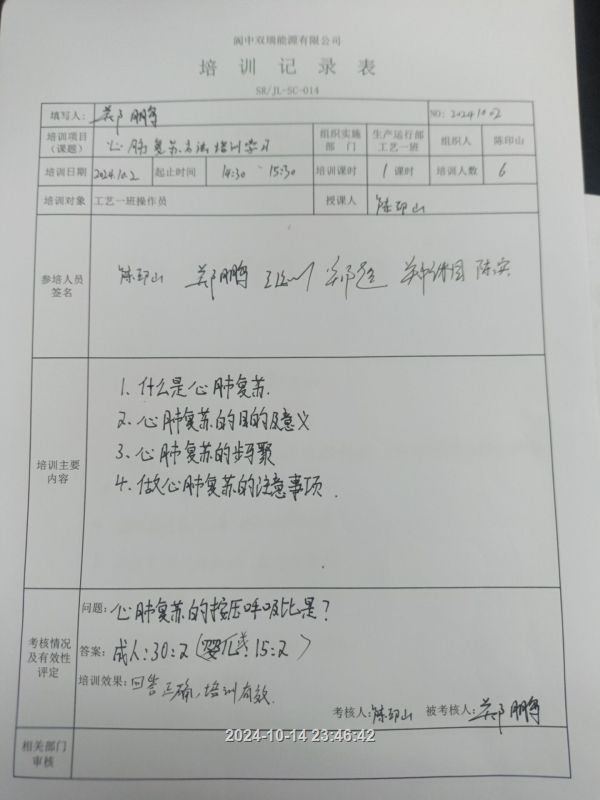 阆中双瑞能源有限公司
培训记录表
SR/JL-SC-014
填写人: 郑鹏 NO: 20241002
培训项目(课题) 心肺复苏方法培训学习 组织实施部门 生产运行部工艺一班 组织人 陈印山
培训日期 2024.10.2 起止时间 14:30 15:30 培训课时 1课时 培训人数 6
培训对象 工艺一班操作员 授课人 陈印山
参培人员签名 陈印山 郑鹏 陈实
培训主要内容
1. 什么是心肺复苏.
2、心肺复苏的目的及意义
3、心肺复苏的步骤
4、做心肺复苏的注意事项.
考核情况及有效性评定
问题: 心肺复苏的按压呼吸比是?
答案: 成人:30:2(婴儿:15:2)
培训效果: 回答正确,培训有效.
考核人: 陈印山 被考核人: 郑鹏
2024-10-14 23:46:42
相关部门审核